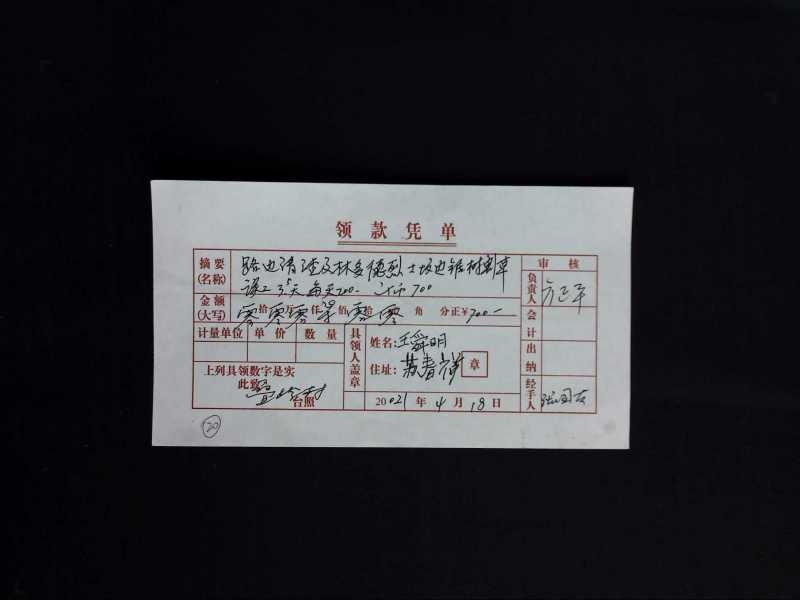 领款凭单
摘要 路边清理及林多德烈士坡边锯树割草 审核
(名称) 误工3.5天 每天200.- 计币700 负责人 方正平
金额 零拾零万零仟柒佰零拾零 角 分正¥700.-
(大写) 会计
计量单位 单价 数量 具领人盖章 姓名:王舜明
住址: 章 出纳
上列具领数字是实
此致
台照 2021年4月18日 经手人
20